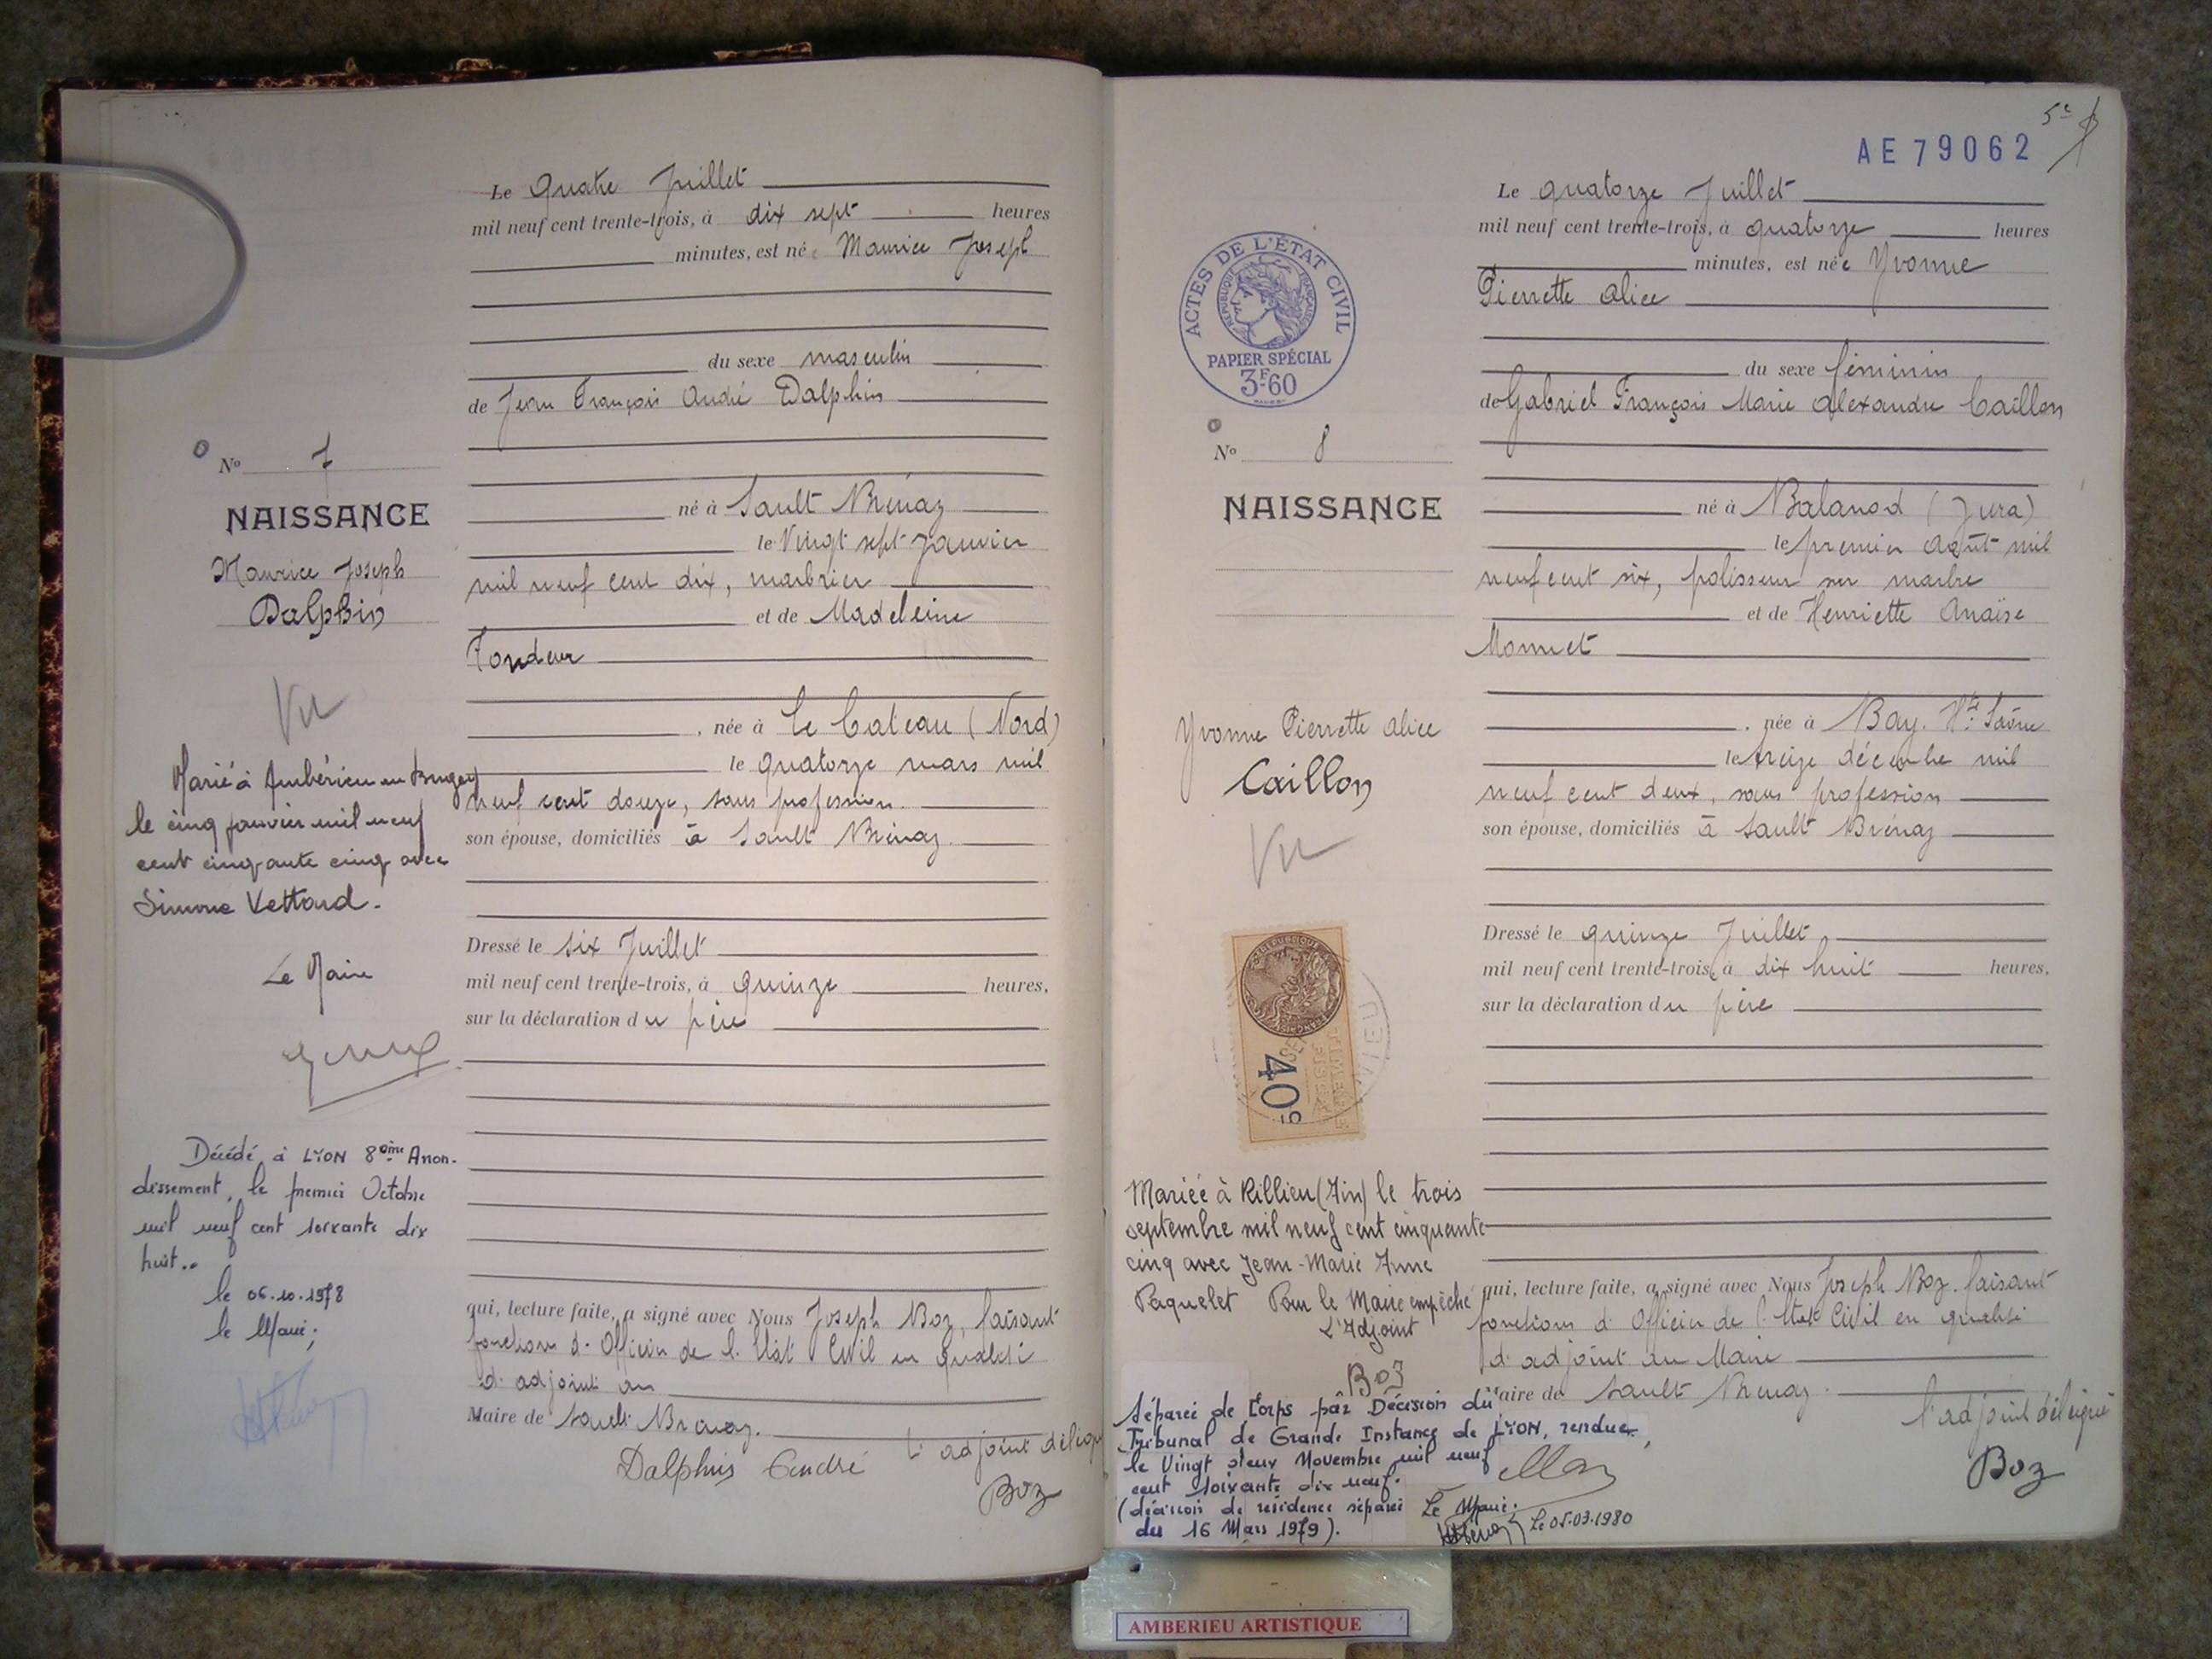 Le quatre Juillet
mil neuf cent trente-trois, à dix sept heures
minutes, est né Maurice Joseph
du sexe masculin
de Jean François André Dalphin
né à Sault Brénaz
le Vingt sept Janvier
mil neuf cent dix, marbrier
et de Madeleine
Tondeur
, née à Le Cateau (Nord)
le quatorze mars mil
neuf cent douze, sans profession.
son épouse, domiciliés à Sault Brénaz.
Dressé le six Juillet
mil neuf cent trente-trois, à quinze heures,
sur la déclaration du père
qui, lecture faite, a signé avec Nous Joseph Boz, faisant
fonctions d'Officier de l'Etat Civil en qualité
d'adjoint au
Maire de Sault Brénaz.
Dalphin André l'adjoint délégué
Boz
No 7
NAISSANCE
Maurice Joseph
Dalphin
Vu
Marié à Ambérieu en Bugey
le cinq janvier mil neuf
cent cinquante cinq avec
Simone Vettard.
Le Maire
Décédé à LYON 8ème Arron-
dissement, le premier Octobre
mil neuf cent soixante dix
huit..
le 06.10.1978
le Maire;
5e
AE79062
Le quatorze Juillet
mil neuf cent trente-trois, à quatorze heures
minutes, est née Yvonne
Pierrette Alice
du sexe féminin
de Gabriel François Marie Alexandre Caillon
né à Balanod (Jura)
le premier Août mil
neuf cent six, polisseur sur marbre
et de Henriette Anaïse
Monnet
, née à Bay. Hte Saône
le treize décembre mil
neuf cent deux, sans profession
son épouse, domiciliés à Sault Brénaz
Dressé le quinze Juillet
mil neuf cent trente-trois, à dix huit heures,
sur la déclaration du père
qui, lecture faite, a signé avec Nous Joseph Boz. faisant
fonctions d'Officier de l'Etat Civil en qualité
d'adjoint au Maire
Maire de Sault Brénaz.
l'adjoint délégué
Boz
ACTES DE L'ÉTAT CIVIL
RÉPUBLIQUE FRANÇAISE
PAPIER SPÉCIAL
3F60
No 8
NAISSANCE
Yvonne Pierrette Alice
Caillon
Vu
40c
Mariée à Rillieu (Ain) le trois
septembre mil neuf cent cinquante
cinq avec Jean-Marie Anne
Paquelet Pour le Maire empêché
L'Adjoint
Boz
Séparée de Corps par Décision du
Tribunal de Grande Instance de LYON, rendue
le Vingt deux Novembre mil neuf
cent soixante dix neuf.
(décision de résidence séparée
du 16 Mars 1979).
Le Maire.
Le 05.03.1980
AMBERIEU ARTISTIQUE